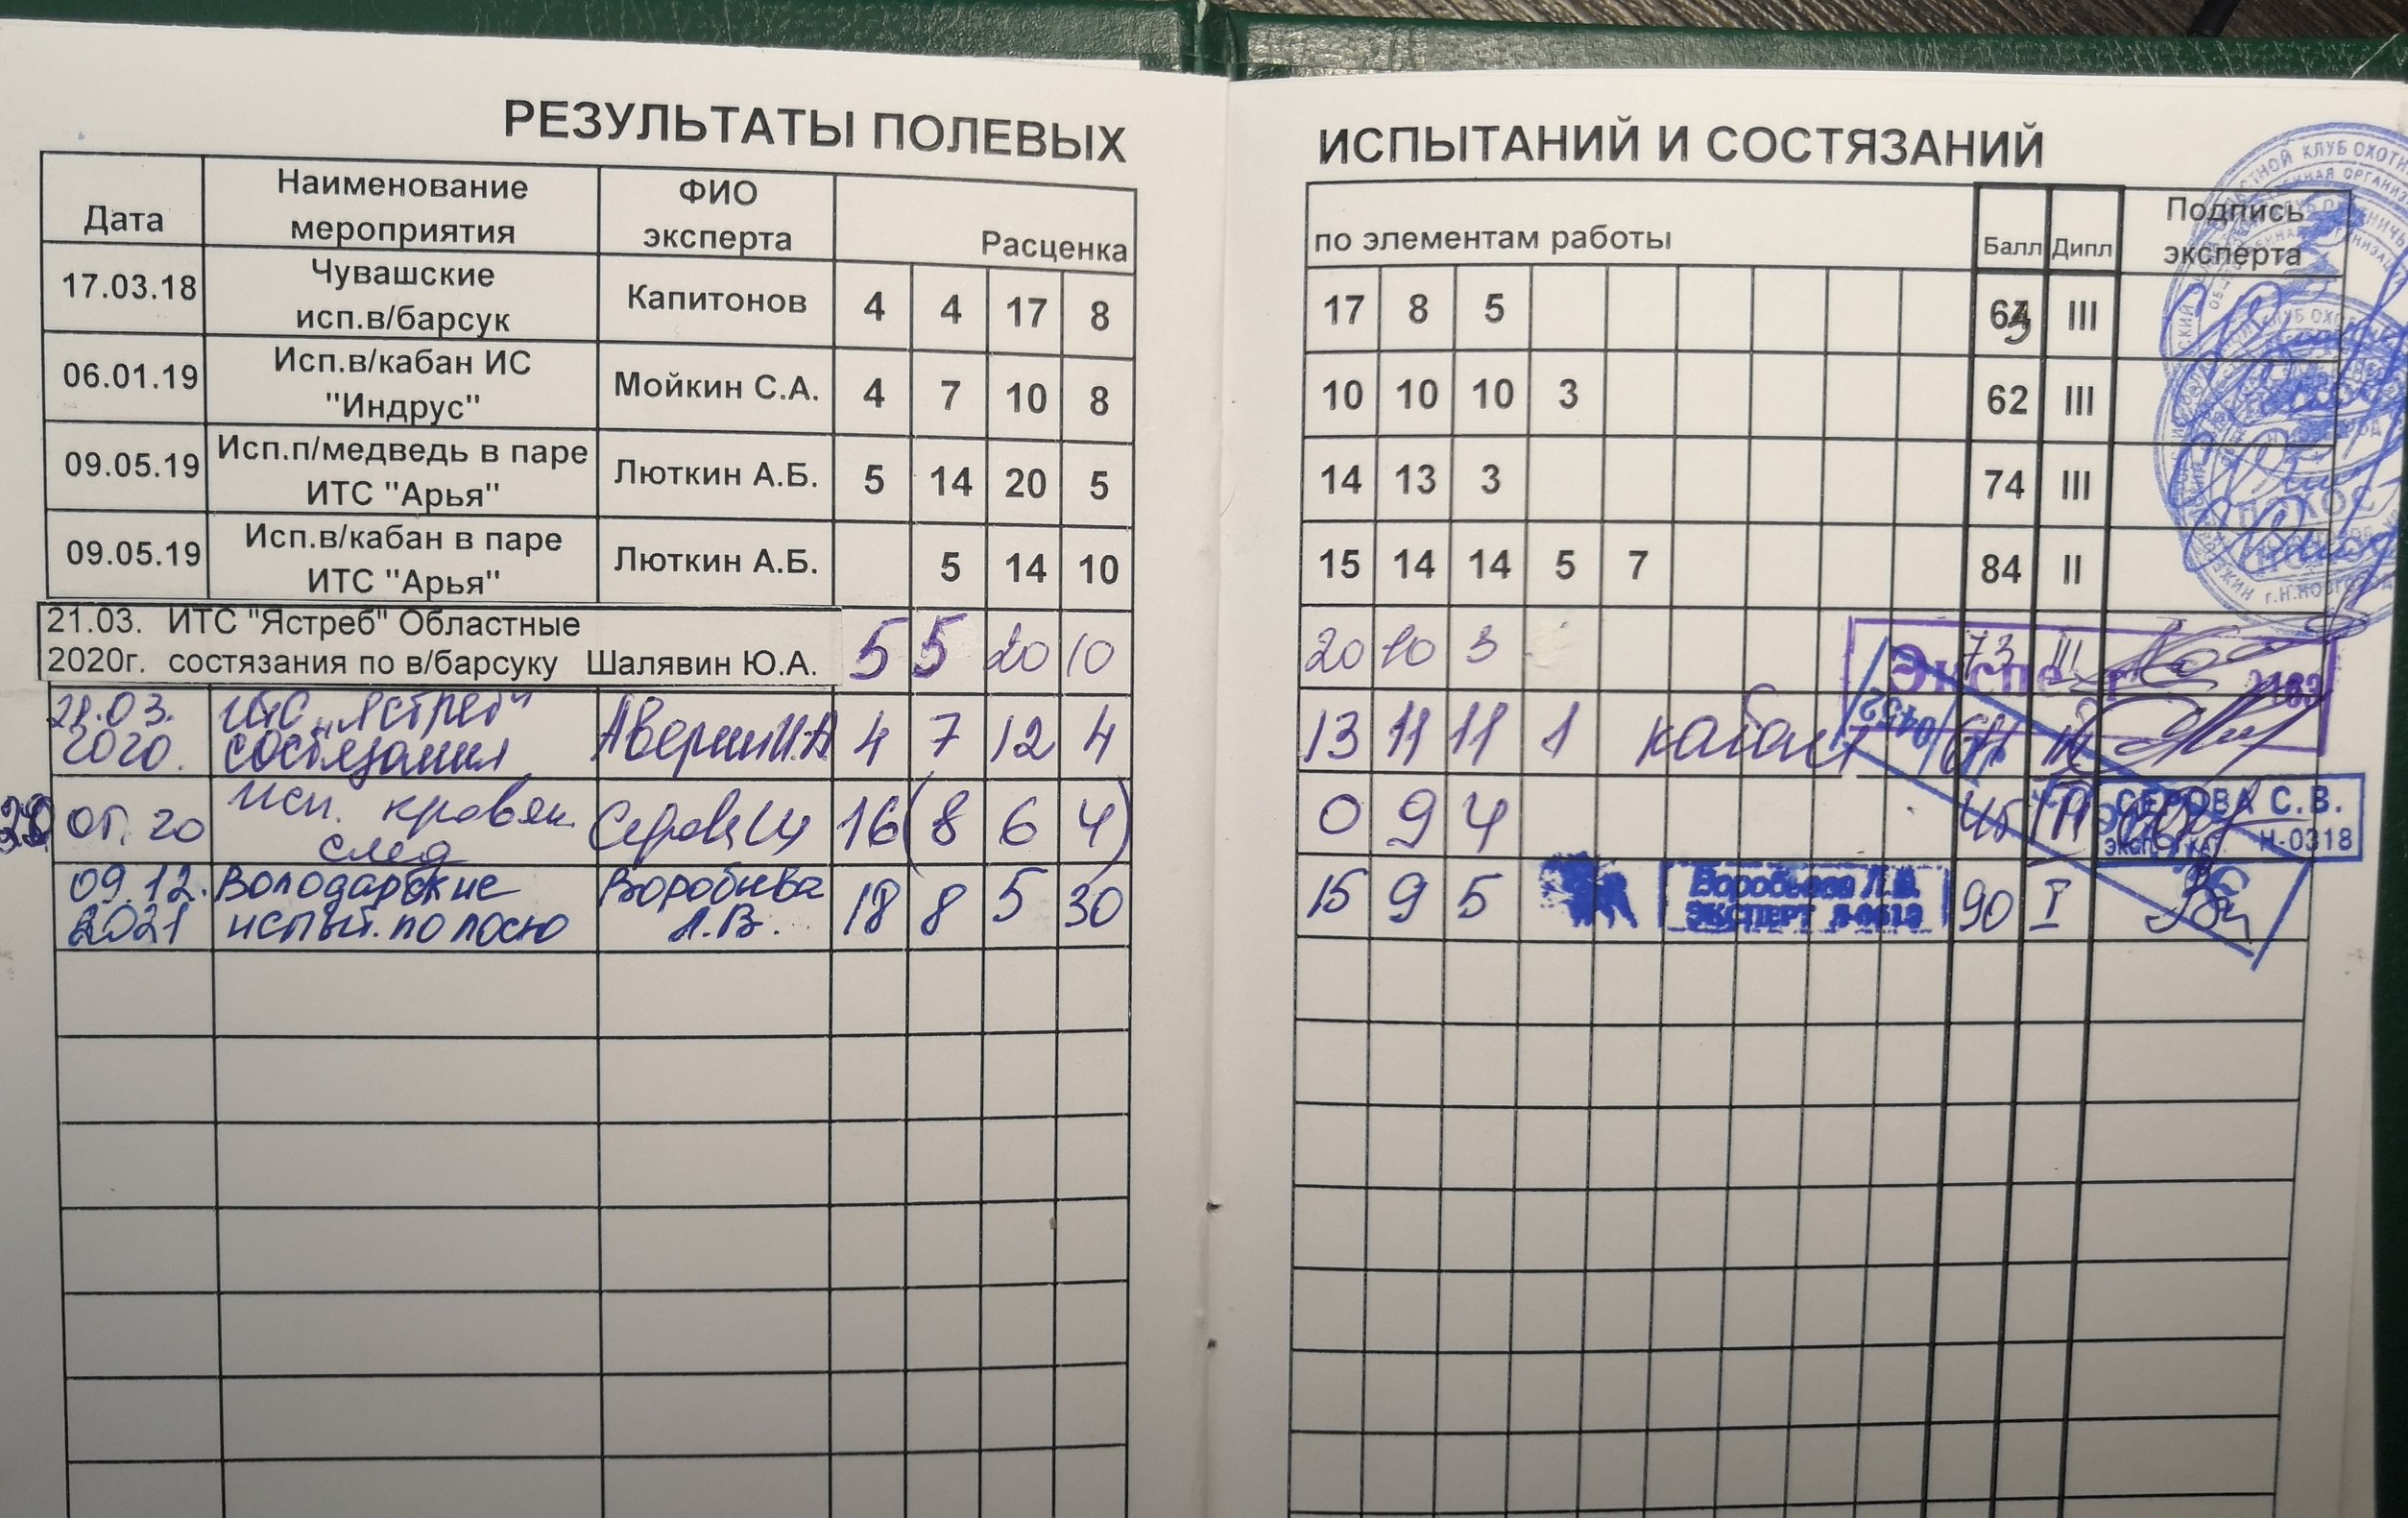 РЕЗУЛЬТАТЫ ПОЛЕВЫХ ИСПЫТАНИЙ И СОСТЯЗАНИЙ
Дата Наименование мероприятия ФИО эксперта Расценка по элементам работы Балл Дипл Подпись эксперта
17.03.18 Чувашские исп.в/барсук Капитонов 4 4 17 8 17 8 5 63 III
06.01.19 Исп.в/кабан ИС "Индрус" Мойкин С.А. 4 7 10 8 10 10 10 3 62 III
09.05.19 Исп.п/медведь в паре ИТС "Арья" Люткин А.Б. 5 14 20 5 14 13 3 74 III
09.05.19 Исп.в/кабан в паре ИТС "Арья" Люткин А.Б. 5 14 10 15 14 14 5 7 84 II
21.03. ИТС "Ястреб" Областные
2020г. состязания по в/барсуку Шалявин Ю.А. 5 5 20 10 20 10 3 73 III
Экспе
21.03. 2020. ИТС "Ястреб" состязания Аверин И.А 4 7 12 4 13 11 11 1 кабан
0452
05. 20 Исп. кровян. след Серова 16 (8 6 4) 0 9 4 III
СЕРОВА С.В.
Н-0318
09.12. 2021 Володарские испыт. по лосю Воробьева Л.В. 18 8 5 30 15 9 5 90 I
Воробьева Л.В.
ЭКСПЕРТ Л-0613